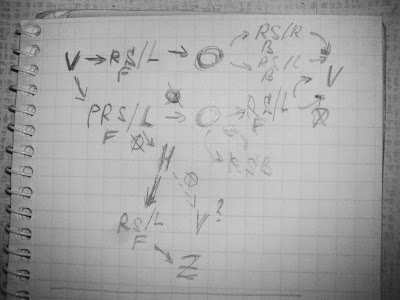 RS/R
B
V RS/L O RS/L V
F B
PRS/L O RS/L
F F
H
RS/L V ?
F
Z